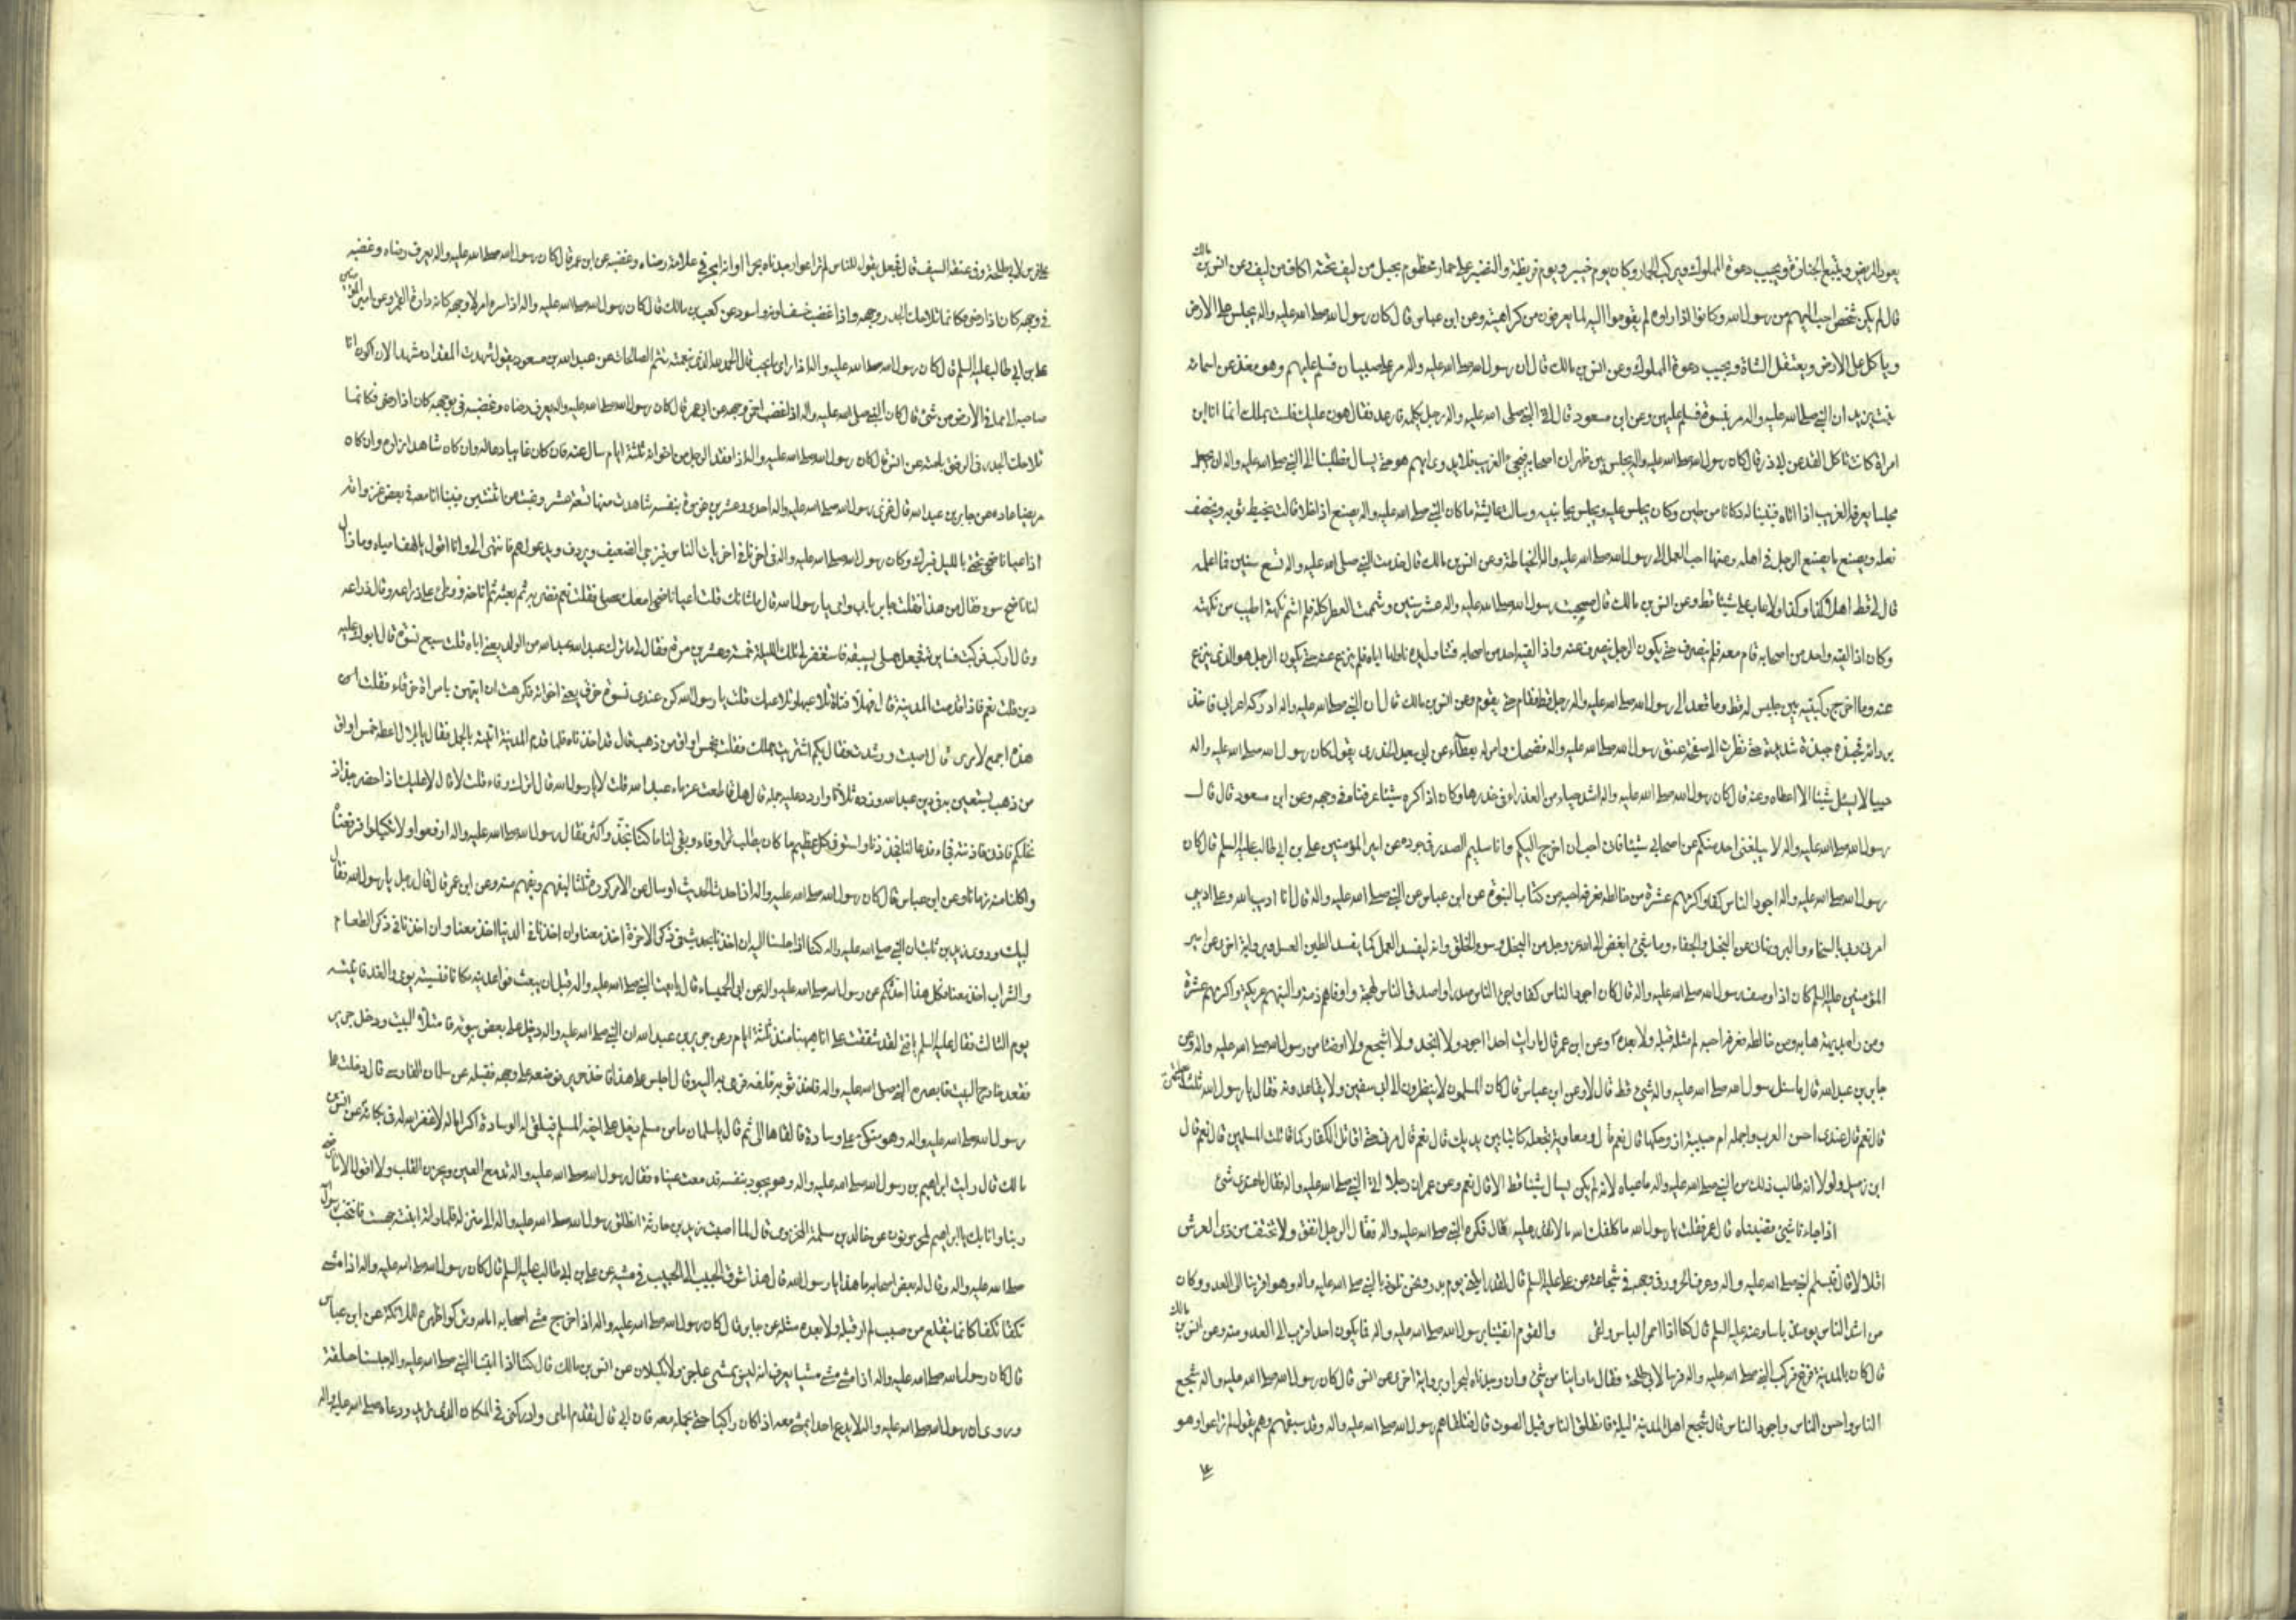 يعود المريض ويتبع الجنازة ويجيب دعوة المملوك ويركب الحمار وكان يوم خيبر ويوم قريظة والنضير على حمار مخطوم بحبل من ليف تحته اكاف من ليف وعن انس بن مالك
قال لم يكن شخص احب اليهم من رسول الله وكانوا اذا راوه لم يقوموا اليه لما يعرفون من كراهيته وعن ابن عباس قال كان رسول الله صلى الله عليه واله يجلس على الارض
وياكل على الارض ويعتقل الشاة ويجيب دعوة المملوك وعن انس بن مالك قال ان رسول الله صلى الله عليه واله مر على صبيان فسلم عليهم وهو مغذ عن اسماء
بنت يزيد ان النبي صلى الله عليه واله مر بنسوة فسلم عليهن وعن ابن مسعود قال اتى النبي صلى الله عليه واله رجل يكلمه فارعد فقال هون عليك فلست بملك انما انا ابن
امراة كانت تاكل القد عن ابي ذر قال كان رسول الله صلى الله عليه واله يجلس بين ظهراني اصحابه فيجيء الغريب فلا يدري ايهم هو حتى يسال فطلبنا الى النبي صلى الله عليه واله ان يجعل
مجلسا يعرفه الغريب اذا اتاه فبنينا له دكانا من طين وكان يجلس عليه ويجلس بجانبيه وسالت عايشة ما كان النبي صلى الله عليه واله يصنع اذا خلا قالت يخيط ثوبه ويخصف
نعله ويصنع ما يصنع الرجل في اهله وعنها احب العمل الى رسول الله صلى الله عليه واله الخياطة وعن انس بن مالك قال خدمت النبي صلى الله عليه واله تسع سنين فما اعلمه
قال لي قط هلا فعلت كذا وكذا ولا عاب علي شيئا قط وعن انس بن مالك قال صحبت رسول الله صلى الله عليه واله عشر سنين وشممت العطر كله فلم اشم نكهة اطيب من نكهته
وكان اذا لقيه واحد من اصحابه قام معه فلم ينصرف حتى يكون الرجل ينصرف عنه واذا لقيه احد من اصحابه فتناول يده ناولها اياه فلم ينزع عنه حتى يكون الرجل هو الذي ينزع
عنه وما اخرج ركبتيه بين جليس له قط وما قعد الى رسول الله صلى الله عليه واله رجل قط فقام حتى يقوم وعن انس بن مالك قال ان النبي صلى الله عليه واله ادركه اعرابي فاخذ
بردائه فجبذه جبذة شديدة حتى نظرت الى صفحة عنق رسول الله صلى الله عليه واله فضحك وامر له بعطاء عن ابي سعيد الخدري يقول كان رسول الله صلى الله عليه واله
حييا لا يسئل شيئا الا اعطاه وعنه قال كان رسول الله صلى الله عليه واله اشد حياء من العذراء في خدرها وكان اذا كره شيئا عرفناه في وجهه وعن ابن مسعود قال قال
رسول الله صلى الله عليه واله لا يبلغني احد منكم عن اصحابي شيئا فاني احب ان اخرج اليكم وانا سليم الصدر في جوده عن امير المؤمنين علي بن ابي طالب عليه السلم قال كان
رسول الله صلى الله عليه واله اجود الناس كفا واكرمهم عشرة من خالطه فعرفه احبه من كتاب النبوة عن ابن عباس عن النبي صلى الله عليه واله قال انا اديب الله وعلي اديبي
امرني ربي بالسخاء والبر ونهاني عن البخل والجفاء وما شيء ابغض الى الله عز وجل من البخل وسوء الخلق وانه ليفسد العمل كما يفسد الطين العسل وبرواية اخرى عن امير
المؤمنين عليه السلم كان اذا وصف رسول الله صلى الله عليه واله قال كان اجود الناس كفا واجرا الناس صدرا واصدق الناس لهجة واوفاهم ذمة والينهم عريكة واكرمهم عشرة
ومن راه بديهة هابه ومن خالطه فعرفه احبه لم ار مثله قبله ولا بعده وعن ابن عمر قال ما رايت احدا اجود ولا انجد ولا اشجع ولا اوضا من رسول الله صلى الله عليه واله وعن
جابر بن عبد الله قال ما سئل رسول الله صلى الله عليه واله شيء قط قال لا وعن ابن عباس قال كان المسلمون لا ينظرون الى ابي سفين ولا يقاعدونه فقال يا رسول الله ثلث اعطنيهن
قال نعم قال عندي احسن العرب واجمله ام حبيبة ازوجكها قال نعم قال ومعاوية تجعله كاتبا بين يديك قال نعم قال مرني حتى اقاتل الكفار كما قاتلت المسلمين قال نعم قال
ابن زميل ولولا انه طالب ذلك من النبي صلى الله عليه واله ما اعطاه لانه لم يكن يسال شيئا قط الا قال نعم وعن عمر ان رجلا اتى النبي صلى الله عليه واله فقال ما عندي شيء
اذا جاءنا شيء قضيناه قال عمر فقلت يا رسول الله ما كلفك الله ما لا تقدر عليه قال فكره النبي صلى الله عليه واله فقال الرجل انفق ولا تخف من ذي العرش
اقلالا قال فتبسم النبي صلى الله عليه واله وعرف السرور في وجهه في شجاعته عن علي عليه السلم قال لقد رايتني يوم بدر ونحن نلوذ بالنبي صلى الله عليه واله وهو اقربنا الى العدو وكان
من اشد الناس يومئذ باسا وعنه عليه السلم قال كنا اذا احمر الباس ولقي والقوم اتقينا برسول الله صلى الله عليه واله فما يكون احد اقرب الى العدو منه وعن انس بن مالك
قال كان بالمدينة فزع فركب النبي صلى الله عليه واله فرسا لابي طلحة فقال ما راينا من شيء وان وجدناه لبحرا وبرواية اخرى عن انس قال كان رسول الله صلى الله عليه واله اشجع
الناس واحسن الناس واجود الناس قال فزع اهل المدينة ليلة فانطلق الناس قبل الصوت قال فتلقاهم رسول الله صلى الله عليه واله وقد سبقهم وهو يقول لم تراعوا وهو
على
على فرس لابي طلحة وفي عنقه السيف قال فجعل يقول للناس لم تراعوا وجدناه بحرا او انه لبحر في علامة رضاه وغضبه عن ابن عمر قال كان رسول الله صلى الله عليه واله يعرف رضاه وغضبه
في وجهه كان اذا رضي فكانما تلاحك الجدر وجهه واذا غضب خسف لونه واسود عن كعب بن مالك قال كان رسول الله صلى الله عليه واله اذا سره الامر وجهه كانه دارة القمر وعن امير المؤمنين
علي بن ابي طالب عليه السلم قال كان رسول الله صلى الله عليه واله اذا راى ما يحب قال الحمد لله الذي بنعمته تتم الصالحات عن عبد الله بن مسعود يقول شهدت المقداد مشهدا لان اكون انا
صاحبه احب الي مما في الارض من شيء قال كان النبي صلى الله عليه واله اذا غضب احمر وجهه عن ابن عمر قال كان رسول الله صلى الله عليه واله يعرف رضاه وغضبه في وجهه كان اذا رضي فكانما
تلاحك الجدر في الرفق بامته عن انس قال كان رسول الله صلى الله عليه واله اذا فقد الرجل من اخوانه ثلثة ايام سال عنه فان كان غايبا دعا له وان كان شاهدا زاره وان كان
مريضا عاده عن جابر بن عبد الله قال غزى رسول الله صلى الله عليه واله احدى وعشرين غزوة بنفسه شاهدت منها تسعة عشر وغبت عن اثنتين فبينا انا معه في بعض غزواته
اذ اعيا ناضحي تحتي بالليل فبرك وكان رسول الله صلى الله عليه واله في اخرنا في اخريات الناس فيزجي الضعيف ويردف ويدعو لهم فانتهى الي وانا اقول يا لهف امياه وما زال
لنا ناضح سوء فقال من هذا فقلت جابر بابي وامي يا رسول الله قال ما شانك قلت اعيا ناضحي فقال امعك عصى فقلت نعم فضربه ثم بعثه ثم اناخه ووطئ على ذراعه وقال
وقال اركب فركبت فسايرته فجعل جملي يسبقه فاستغفر لي تلك الليلة خمسة وعشرين مرة فقال لي ما ترك عبد الله من الولد يعني اباه قلت سبع نسوة قال ابوك عليه
دين قلت نعم فاذا قدمت المدينة قال فهلا فتاة تلاعبها وتلاعبك قلت يا رسول الله كن عندي نسوة خرق يعني اخواته فكرهت ان اتيهن بامراة خرقاء فقلت
هذه اجمع لامري قال اصبت ورشدت فقال بكم اشتريت جملك فقلت بخمس اواق من ذهب قال قد اخذناه فلما قدم المدينة اتيته بالجمل فقال يا بلال اعطه خمس اواق
من ذهب يستعين به في دين عبد الله وزده ثلاثا واردد عليه جمله قال هل قاطعت غرماء عبد الله قلت لا يا رسول الله قال اترك وفاء قلت لا قال لا عليك اذا حضر جذاذ
نخلكم فاذني فاذنته فجاء فدعا لنا فجذذنا واستوفى كل غريم ما كان يطلب تمرا وفاء وبقي لنا ما كنا نجذ واكثر فقال رسول الله صلى الله عليه واله ارفعوا ولا تكيلوا فرفعناه
واكلنا منه زمانا وعن ابن عباس قال كان رسول الله صلى الله عليه واله اذا حدث الحديث او سال عن الامر كرره ثلثا ليفهم ويفهم عنه وعن ابن عمر قال قال رجل يا رسول الله فقال
لبيك وروى زيد بن ثابت ان النبي صلى الله عليه واله كنا اذا جلسنا اليه ان اخذنا بحديث في ذكر الاخرة اخذ معنا وان اخذنا في الدنيا اخذ معنا وان اخذنا في ذكر الطعام
والشراب اخذ معنا فكل هذا احدثكم عن رسول الله صلى الله عليه واله عن ابي الحميساء قال بايعت النبي صلى الله عليه واله قبل ان يبعث فواعدنيه مكانا فنسيته يومي والغد فاتيته
يوم الثالث فقال عليه السلم يا فتى لقد شققت علي انا ههنا منذ ثلثة ايام وعن جرير بن عبد الله ان النبي صلى الله عليه واله دخل بعض بيوته فامتلا البيت ودخل جرير
فقعد خارج البيت فابصره النبي صلى الله عليه واله فاخذ ثوبه فلفه فرمى به اليه وقال اجلس على هذا فاخذه جرير فوضعه على وجهه فقبله عن سلمان الفارسي قال دخلت على
رسول الله صلى الله عليه واله وهو متكئ على وسادة فالقاها الي ثم قال يا سلمان ما من مسلم دخل على اخيه المسلم فيلقي له الوسادة اكراما له الا غفر الله له في بكائه عن انس بن
مالك قال رايت ابراهيم بن رسول الله صلى الله عليه واله وهو يجود بنفسه فدمعت عيناه فقال رسول الله صلى الله عليه واله تدمع العين ويحزن القلب ولا اقول الا ما يرضى
ربنا وانا بك يا ابراهيم لمحزونون عن خالد بن سلمة المخزومي قال لما اصيب زيد بن حارثة انطلق رسول الله صلى الله عليه واله الى منزله فلما راته ابنته جهشت فانتحب رسول الله
صلى الله عليه واله وقال له بعض اصحابه ما هذا يا رسول الله قال هذا شوق الحبيب الى الحبيب في مشيه عن علي بن ابي طالب عليه السلم قال كان رسول الله صلى الله عليه واله اذا مشى
تكفا تكفيا كانما يتقلع من صبب لم ار قبله ولا بعده مثله عن جابر قال كان رسول الله صلى الله عليه واله اذا خرج مشى اصحابه امامه وتركوا ظهره للملائكة عن ابن عباس
قال كان رسول الله صلى الله عليه واله اذا مشى مشى مشيا يعرف انه ليس بمشي عاجز ولا كسلان عن انس بن مالك قال كنا اذا اتينا النبي صلى الله عليه واله جلسنا حلقة
وروي ان رسول الله صلى الله عليه واله لا يدع احدا يمشي معه اذا كان راكبا حتى يحمله معه فان ابى قال تقدم امامي وادركني في المكان الذي تريد ودعاه صلى الله عليه واله